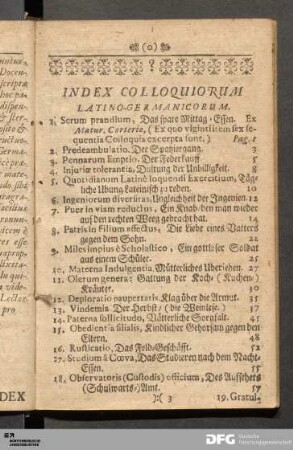 (o)
INDEX COLLOQUIORUM
LATINO-GERMANICORUM.
1. Serum prandium, Das spate Mittag-Essen. Ex
Matur. Corderio, (Ex quo viginti item sex se-
quentia Colloquia excerpta sunt.) Pag. 1
2. Prodeambulatio. Der Spatziergang. 3
3. Pennarum Emptio. Der Federkauff 5
4. Injuriæ tolerantia, Dultung der Unbilligkeit. 8
5. Quotidianum Latinè loquendi Exercitium, Täg-
liche Ubung Lateinisch zu reden. 10
6. Ingeniorum diversitas, Ungleichheit der Ingenien 12
7. Puer in viam reductus, Ein Knab/den man wieder
auf den rechten Weeg gebracht hat. 14
8. Patris in Filium affectus, Die Liebe eines Vatters
gegen dem Sohn. 22
9. Miles impius è Scholastico, Ein gottloser Soldat
aus einem Schüler. 25
10. Materna Indulgentia, Mütterliches Ubersehen. 27
11. Olerum genera: Gattung der Koch-(Kuchen-)
Kräuter. 30
12. Deploratio paupertatis, Klag über die Armut. 35
13. Vindemia. Der Herbst/ (die Weinlese.) 37
14. Paterna sollicitudo, Vätterliche Sorgfalt. 45
15. Obedientia filialis, Kindlicher Gehorsam gegen den
Eltern. 48
16. Rusticatio, Das Feld-Geschäfft. 52
17. Studium à Cœna, Das Studieren nach dem Nacht-
Essen. 55
18. Observatoris (Custodis) officium, Des Aufsehers
(Schulwarts-) Amt. 57
3 19. Gratul.
DEX
DFG Deutsche
Forschungsgemeinschaft